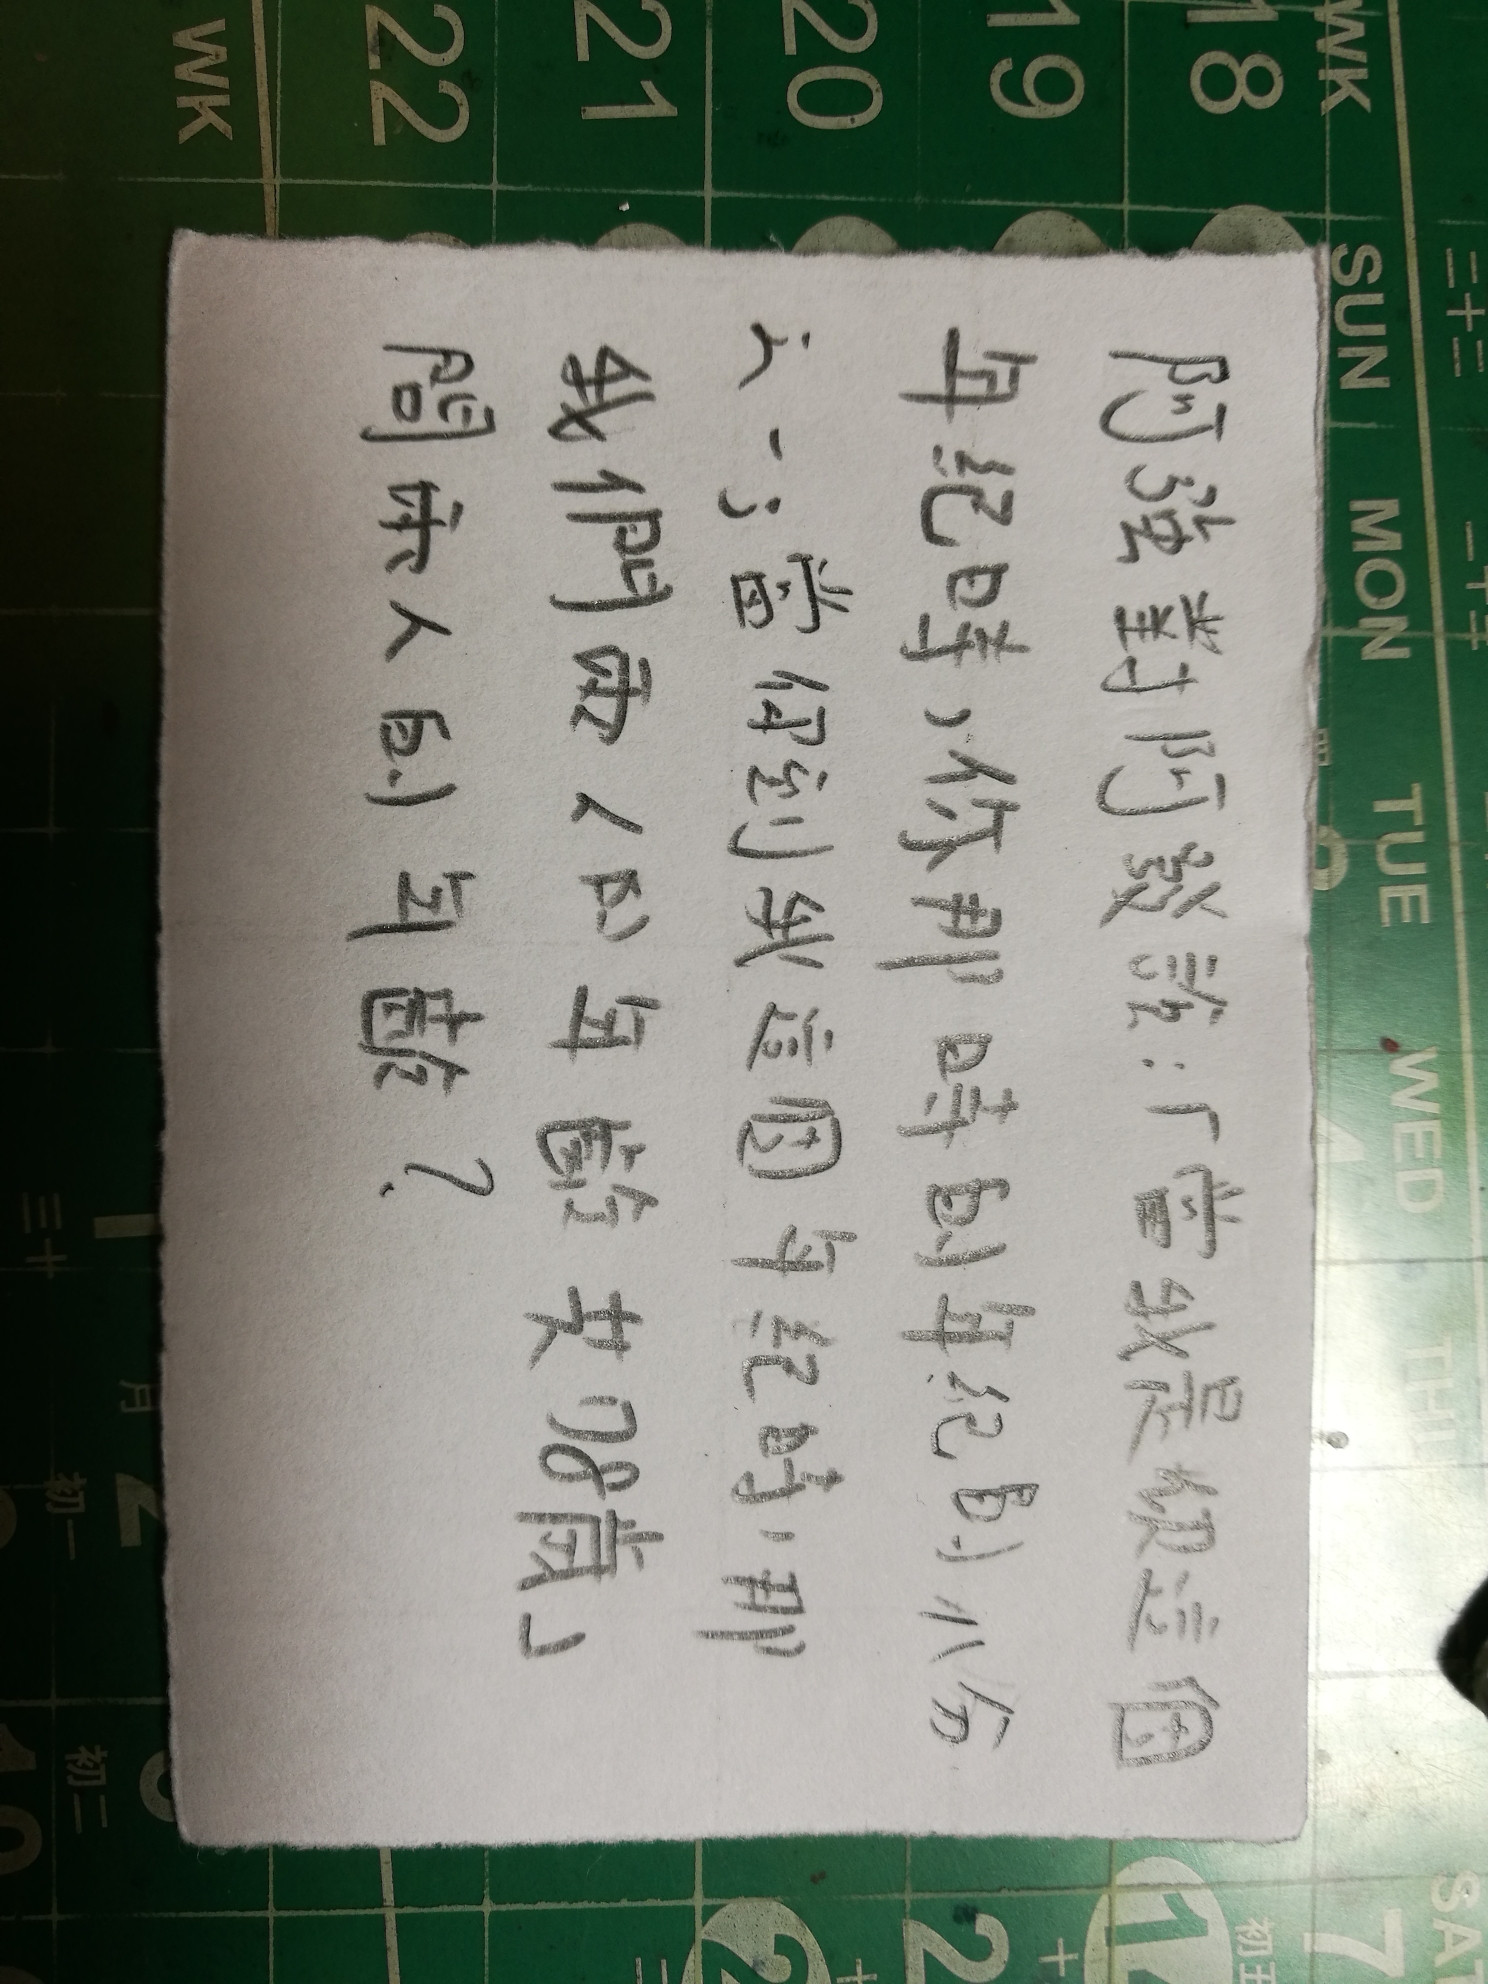 阿強對阿發說：「當我是這個
年紀時，你那時的年紀的八分
之一；當你到我這個年紀時，那
我們兩人的年齡共78歲」
問兩人的年齡？
WK
18
19
20
21
22
WK
SUN
MON
TUE
WED
THU
SAT
7
4
1
2
三十
初一
初二